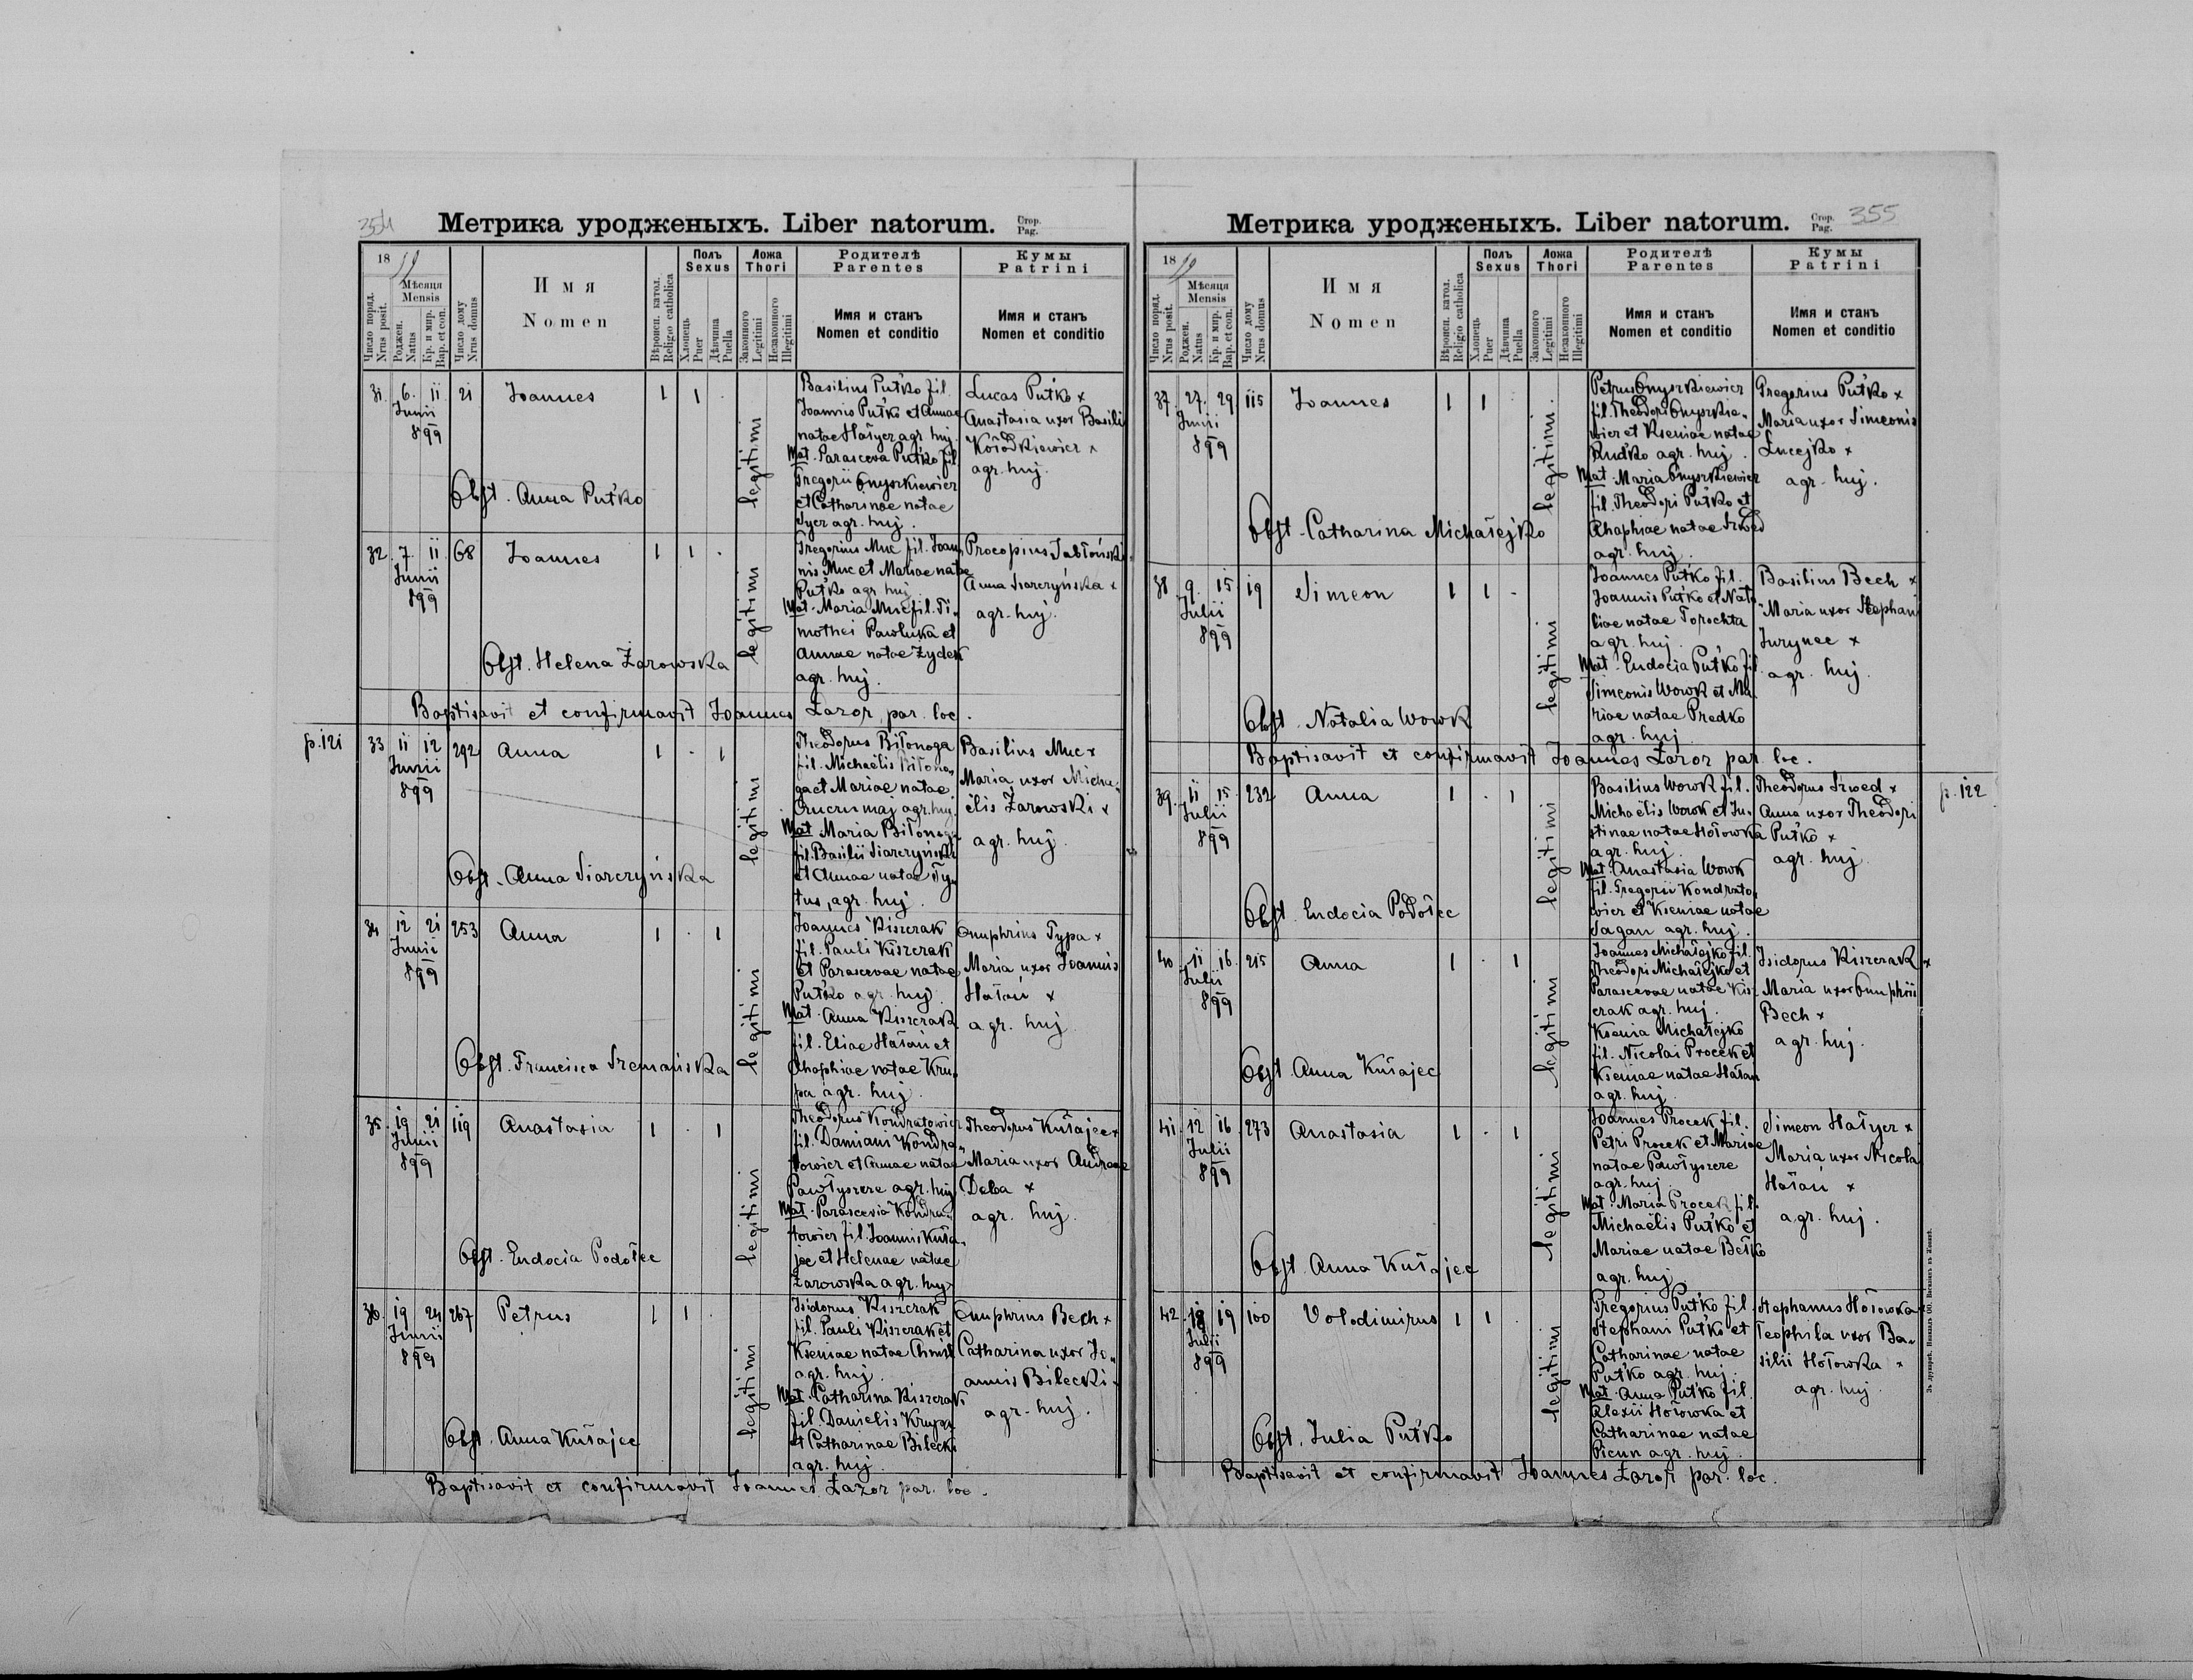 354
Метрика уродженыхъ. Liber natorum.
Стор.
Pag.
1899
Число поряд.
Nrus posit.
Мѣсяця
Mensis
Роджен.
Natus
Кр. и мир.
Bap. et con.
Число дому
Nrus domus
Имя
Nomen
Вѣроисп. катол.
Religio catholica
Полъ
Sexus
Хлопець
Puer
Дѣвчина
Puella
Ложа
Thori
Законного
Legitimi
Незаконного
Illegitimi
Родителѣ
Parentes
Имя и станъ
Nomen et conditio
Кумы
Patrini
Имя и станъ
Nomen et conditio
31. 6. 11. 21 Joannes 1 1 .
Junii
899
legitimi
Basilius Put'ko fil.
Joannis Put'ko et Annae
natae Hałycz agr. huj.
Mat. Parasceva Put'ko fil.
Gregorii Onyszkiewicz
et Catharinae natae
Tycz agr. huj.
Lucas Put'ko x
Anastasia uxor Basilii
Kołodkiewicz x
agr. huj.
Obst. Anna Put'ko
32. 7. 11. 68 Joannes 1 1 .
Junii
899
legitimi
Gregorius Muc fil. Joan„
nis Muc et Mariae natae
Put'ko agr. huj.
Mat. Maria Muc fil. Ti„
mothei Pawluka et
Annae natae Zydek
agr. huj.
Procopius Jabłoński
Anna Siarczyńska x
agr. huj.
Obst. Helena Żarowska
Baptisavit et confirmavit Joannes Łazor, par. loc.
p. 121
33 11 12 292 Anna 1 . 1
Junii
899
legitimi
Theodorus Biłonoga
fil. Michaëlis Biłono„
ga et Mariae natae
Cruczumaj agr. huj.
Mat Maria Biłonoga
fil. Basilii Siarczyński
et Annae natae Ty„
tus, agr. huj.
Basilius Muc x
Maria uxor Micha„
ëlis Żarowski x
agr. huj.
Obst. Anna Siarczyńska
34 12 21 253 Anna 1 . 1
Junii
899
legitimi
Joannes Kiszczak
fil. Pauli Kiszczak
et Parascevae natae
Put'ko agr. huj.
Mat. Anna Kiszczak
fil. Eliae Hałań et
Ahaphiae natae Kru„
pa agr. huj.
Onuphrius Typa x
Maria uxor Joannis
Hałań x
agr. huj.
Obst. Francisca Szemańska
35. 19 21 119 Anastasia 1 . 1
Junii
899
legitimi
Theodorus Kondratowicz
fil. Damiani Kondra„
towicz et Annae natae
Pawłyszcze agr. huj
Mat. Parascevia Kondra„
towicz fil. Joannis Kuła„
jec et Helenae natae
Żarowska agr. huj
Theodorus Kułajec x
Maria uxor Andreae
Deba x
agr. huj.
Obst. Eudocia Podołec
36. 19 24 267 Petrus 1 1 .
Junii
899
legitimi
Isidorus Kiszczak
fil. Pauli Kiszczak et
Kseniae natae Chmil
agr. huj.
Mat. Catharina Kiszczak
fil. Danielis Krupa
et Catharinae Bilecki
agr. huj.
Onuphrius Bech x
Catharina uxor Jo„
annis Bilecki x
agr. huj.
Obst. Anna Kułajec
Baptisavit et confirmavit Joannes Łazor par. loc.
Метрика уродженыхъ. Liber natorum.
Стор.
Pag.
355
1899
Число поряд.
Nrus posit.
Мѣсяця
Mensis
Роджен.
Natus
Кр. и мир.
Bap. et con.
Число дому
Nrus domus
Имя
Nomen
Вѣроисп. катол.
Religio catholica
Полъ
Sexus
Хлопець
Puer
Дѣвчина
Puella
Ложа
Thori
Законного
Legitimi
Незаконного
Illegitimi
Родителѣ
Parentes
Имя и станъ
Nomen et conditio
Кумы
Patrini
Имя и станъ
Nomen et conditio
37. 27. 29 115 Joannes 1 1 .
Junii
899
legitimi.
Petrus Onyszkiewicz
fil. Theodori Onyszkie„
wicz et Kseniae natae
Rud'ko agr. huj.
Mat. Maria Onyszkiewicz
fil. Theodori Put'ko et
Ahaphiae natae Szwed
agr. huj.
Gregorius Put'ko x
Maria uxor Simeonis
Lucejko x
agr. huj.
Obst. Catharina Michałejko
38 9. 15 19 Simeon 1 1 .
Julii
899
legitimi
Joannes Put'ko fil.
Joannis Put'ko et Nata
liae natae Torochta
agr. huj.
Mat. Eudocia Put'ko fil
Simeonis Wowk et Ma„
riae natae Predko
agr. huj
Basilius Bech x
Maria uxor Stephani
Jurynec x
agr. huj.
Obst. Natalia Wowk
Baptisavit et confirmavit Joannes Łazor par. loc.
p. 122
39. 11 15. 232 Anna 1 . 1
Julii
899
legitimi
Basilius Wowk fil.
Michaëlis Wowk et Ju„
stinae natae Hołowka
agr. huj.
Mat. Anastasia Wowk
fil. Gregorii Kondrato„
wicz et Kseniae natae
Sagan agr. huj.
Theodorus Szwed x
Anna uxor Theodori
Put'ko x
agr. huj.
Obst. Eudocia Podołec
40. 11 16. 215 Anna 1 . 1
Julii
899
legitimi
Joannes Michałejko fil.
Theodori Michałejko et
Parascevae natae Kisz
czak agr. huj.
Ksenia Michałejko
fil. Nicolai Procek et
Kseniae natae Hałan
agr. huj.
Isidorus Kiszczak x
Maria uxor Onuphrii
Bech x
agr. huj.
Obst. Anna Kułajec
41. 12 16 273 Anastasia 1 . 1
Julii
899
legitimi
Joannes Procek fil.
Petri Procek et Mariae
natae Pawłyszcze
agr. huj.
Mat. Maria Procek fil.
Michaëlis Put'ko et
Mariae natae Bełko
agr. huj
Simeon Hałycz x
Maria uxor Nicolai
Hałań x
agr. huj.
Obst. Anna Kułajec
42. 18 19 100 Volodimirus 1 1 .
Julii
899
legitimi
Gregorius Put'ko fil.
Stephani Put'ko et
Catharinae natae
Put'ko agr. huj.
Mat. Anna Put'ko fil.
Alexii Hołowka et
Catharinae natae
Picun agr. huj.
Stephanus Hołowka x
Teophila uxor Ba„
silii Hołowka x
agr. huj.
Obst. Julia Put'ko
Baptisavit et confirmavit Joannes Łazor par. loc.